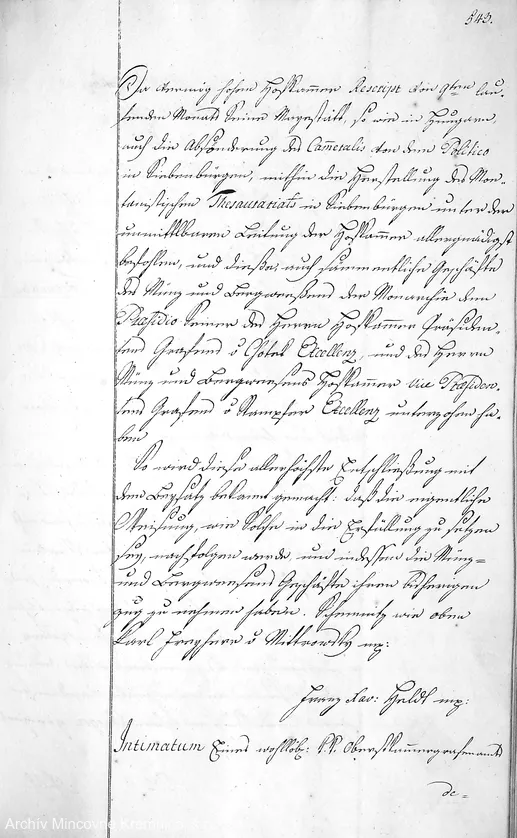 543.
Da vermög hohen Hofkammer Rescript vom 9ten lau-
fenden Monats Seine Mayestätt, so wie in Hungarn,
auch die Absönderung des Cameralis von dem Politico
in Siebenbürgen, mithin die Herstellung des Mon-
tanistischen Thesaurariats in Siebenbürgen unter der
unmittelbaren Leitung der Hofkammer allergnädigst
befohlen, und dieße, auch sammentliche Geschäfte
des Münz und Bergweesens der Monarchie dem
Præsidio Seiner des Herrn Hofkammer Präsiden-
ten Grafens v Chotek Excellenz, und des Herrn
Münz und Bergweesens Hofkammer Vice Præsiden-
ten Grafens v Stampfer Excellenz unterzohen ha-
ben
So wird diese allerhöchste Entschließung mit
dem Beysatz bekannt gemacht: daß die eigentliche
Weisung, wie Solche in die Erfüllung zu setzen
sey, nachfolgen werde, und indessen die Münz-
und Bergweesens Geschäfte ihren bisherigen
Zug zu nehmen haben. Schemnitz wie oben
Karl Freyherr v Mittrowsky mp:
Franz Xav: Heldt mp:
Intimatum Eines wohllöb: K.K. Oberstkammergrafenamts
de-
Archiv Mincovne Kremnica